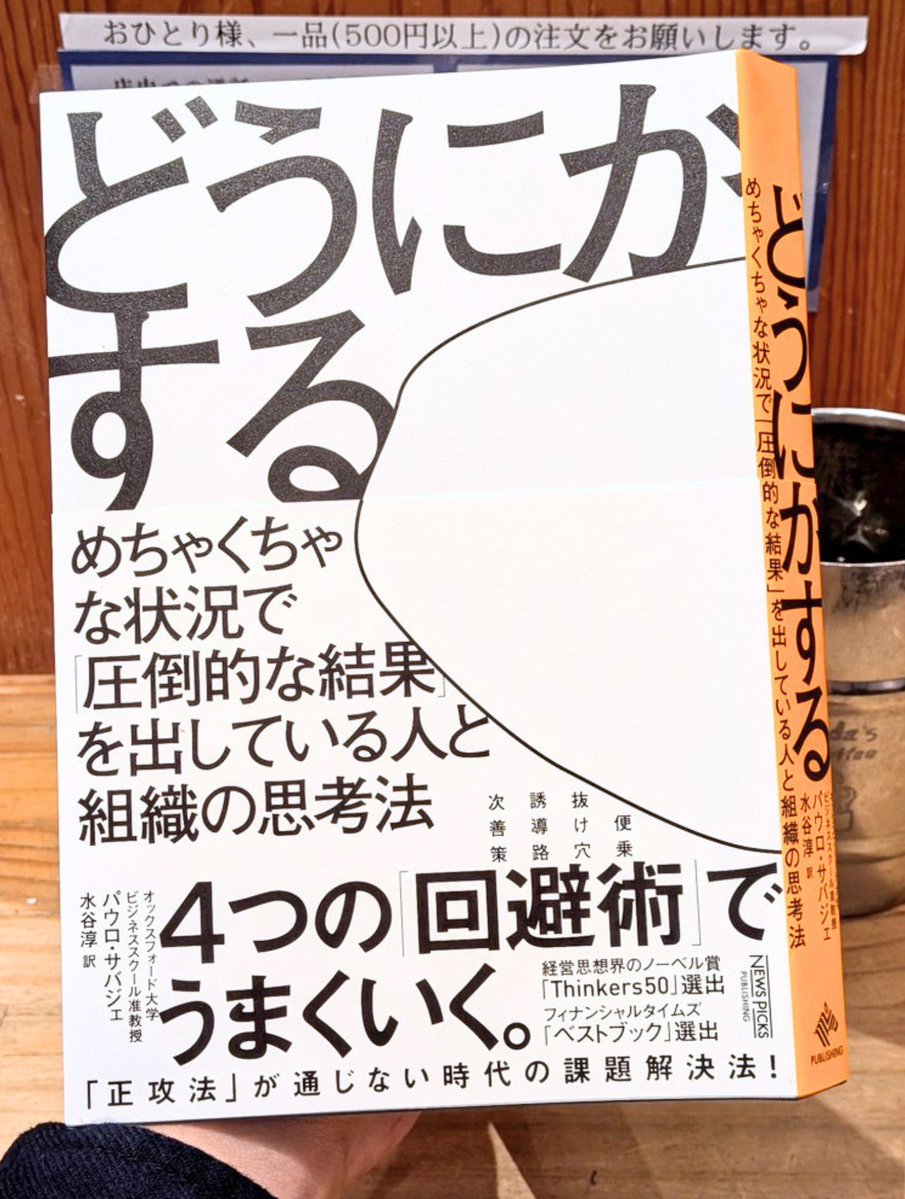 おひとり様、一品(500円以上)の注文をお願いします。
どうにか
する
めちゃくちゃ
な状況で
「圧倒的な結果」
を出している人と
組織の思考法
便乗
抜け穴
誘導路
次善策
4つの「回避術」で
うまくいく。
オックスフォード大学
ビジネススクール准教授
パウロ・サバジェ
水谷淳 訳
経営思想界のノーベル賞
「Thinkers50」選出
フィナンシャルタイムズ
「ベストブック」選出
NEWS PICKS
PUBLISHING
「正攻法」が通じない時代の課題解決法!
どうにかする
めちゃくちゃな状況で「圧倒的な結果」を出している人と組織の思考法
ビジネススクール准教授
パウロ・サバジェ
水谷淳 訳
PUBLISHING